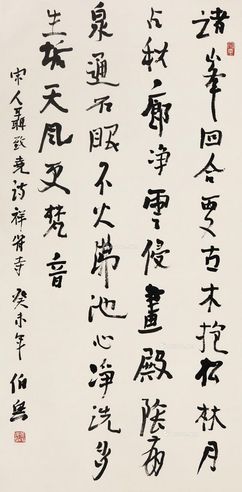 諸峯回合古木抱松林月
占秋廊净雲侵畫殿陰
泉通石眼不火佛池心净洗多
生垢天風更梵音
宋人聶致堯詩祥符寺 癸未年 伯